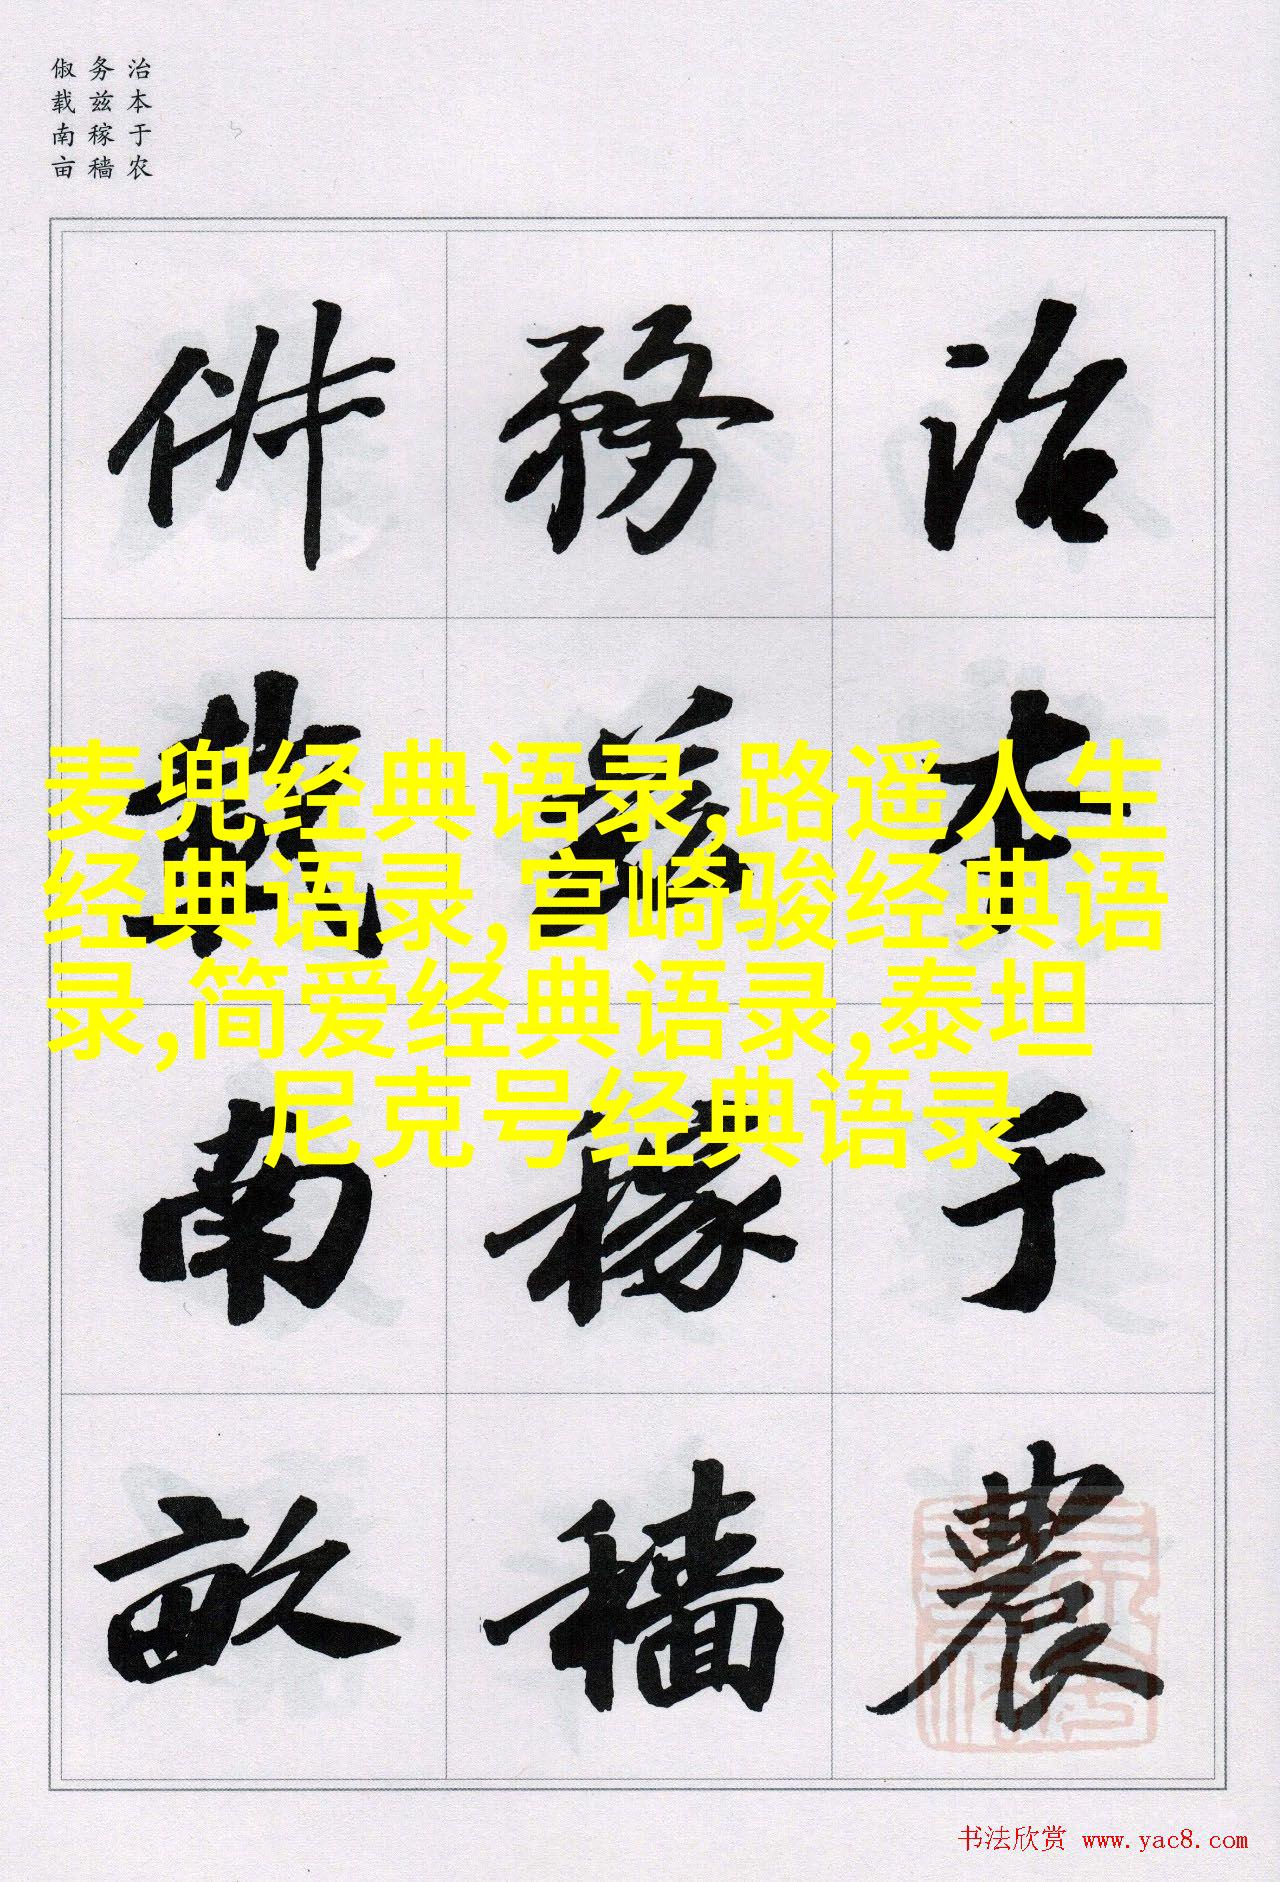 治本于农
务兹稼穑
俶载南亩
治本于農
務茲稼穡
俶載南畝
麦兜经典语录,路遥人生
经典语录,宫崎骏经典语
录,简爱经典语录,泰坦
尼克号经典语录
书法欣赏 www.yac8.com